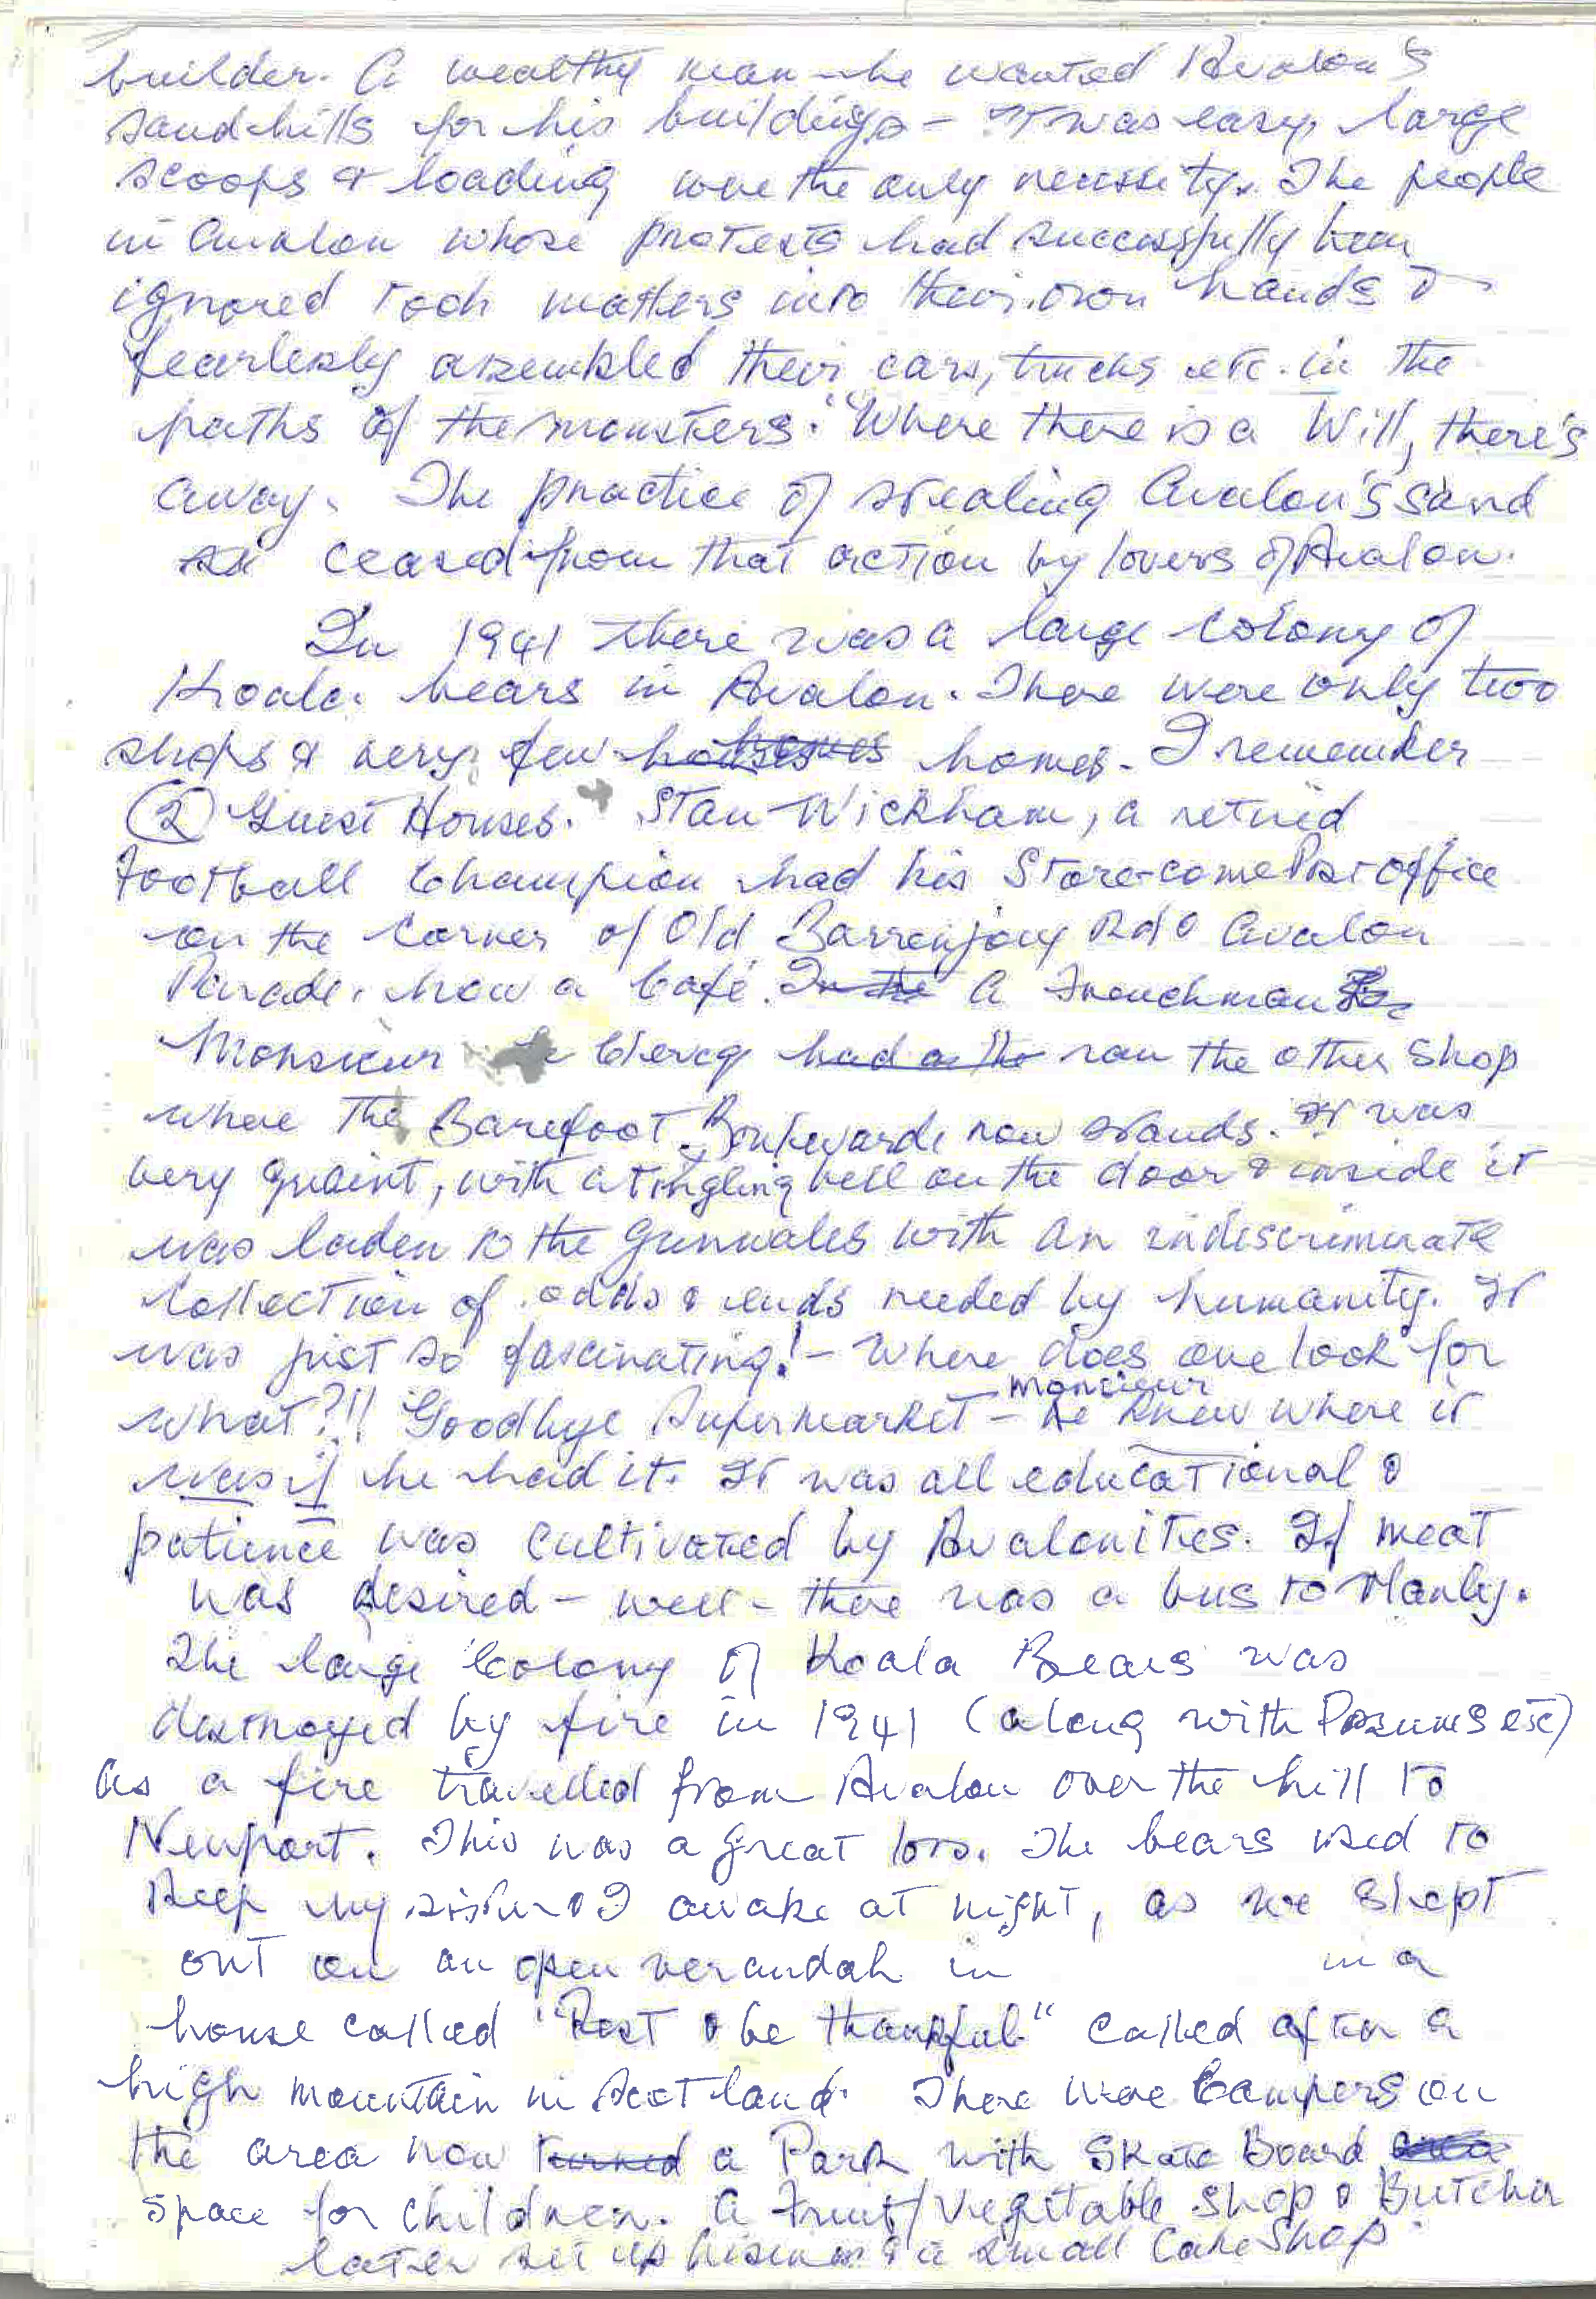 builder. A wealthy man - he wanted Avalon's
sandhills for his buildings - It was easy, large
scoops & loading were the only necessity. The people
in Avalon whose protests had successfully been
ignored took matters into their own hands &
fearlessly assembled their cars, trucks etc. in the
paths of the monsters. "Where there is a Will, there's
away. The practice of stealing Avalon's sand
ceased from that action by lovers of Avalon.
In 1941 there was a large colony of
Koala bears in Avalon. There were only two
shops & very few homes. I remember
(2) Guest Houses. Stan Wickham, a retired
Football Champion had his Store-come Post Office
on the corner of Old Barrenjoey Rd & Avalon
Parade, now a Café. A Frenchman
Monsieur Clercq ran the other shop
where The Barefoot Boulevarde now stands. It was
very quaint, with a tingling bell on the door & inside it
was laden to the gunwales with an indiscriminate
collection of odds & ends needed by humanity. It
was just so fascinating! - Where does one look for
what?!! Goodbye Supermarket - monsieur knew where it
was if he had it. It was all educational &
patience was cultivated by Avalonites. If meat
was desired - well - there was a bus to Manly.
The large Colony of Koala Bears was
destroyed by fire in 1941 (along with Possums etc)
as a fire travelled from Avalon over the hill to
Newport. This was a great loss. The bears used to
keep my sister & I awake at night, as we slept
out on an open verandah in in a
house called "Rest & be thankful" called after a
high mountain in Scotland. There were Campers on
the area now a Park with Skate Board
space for children. A Fruit/Vegetable shop & Butcher
later set up & a small Cake Shop